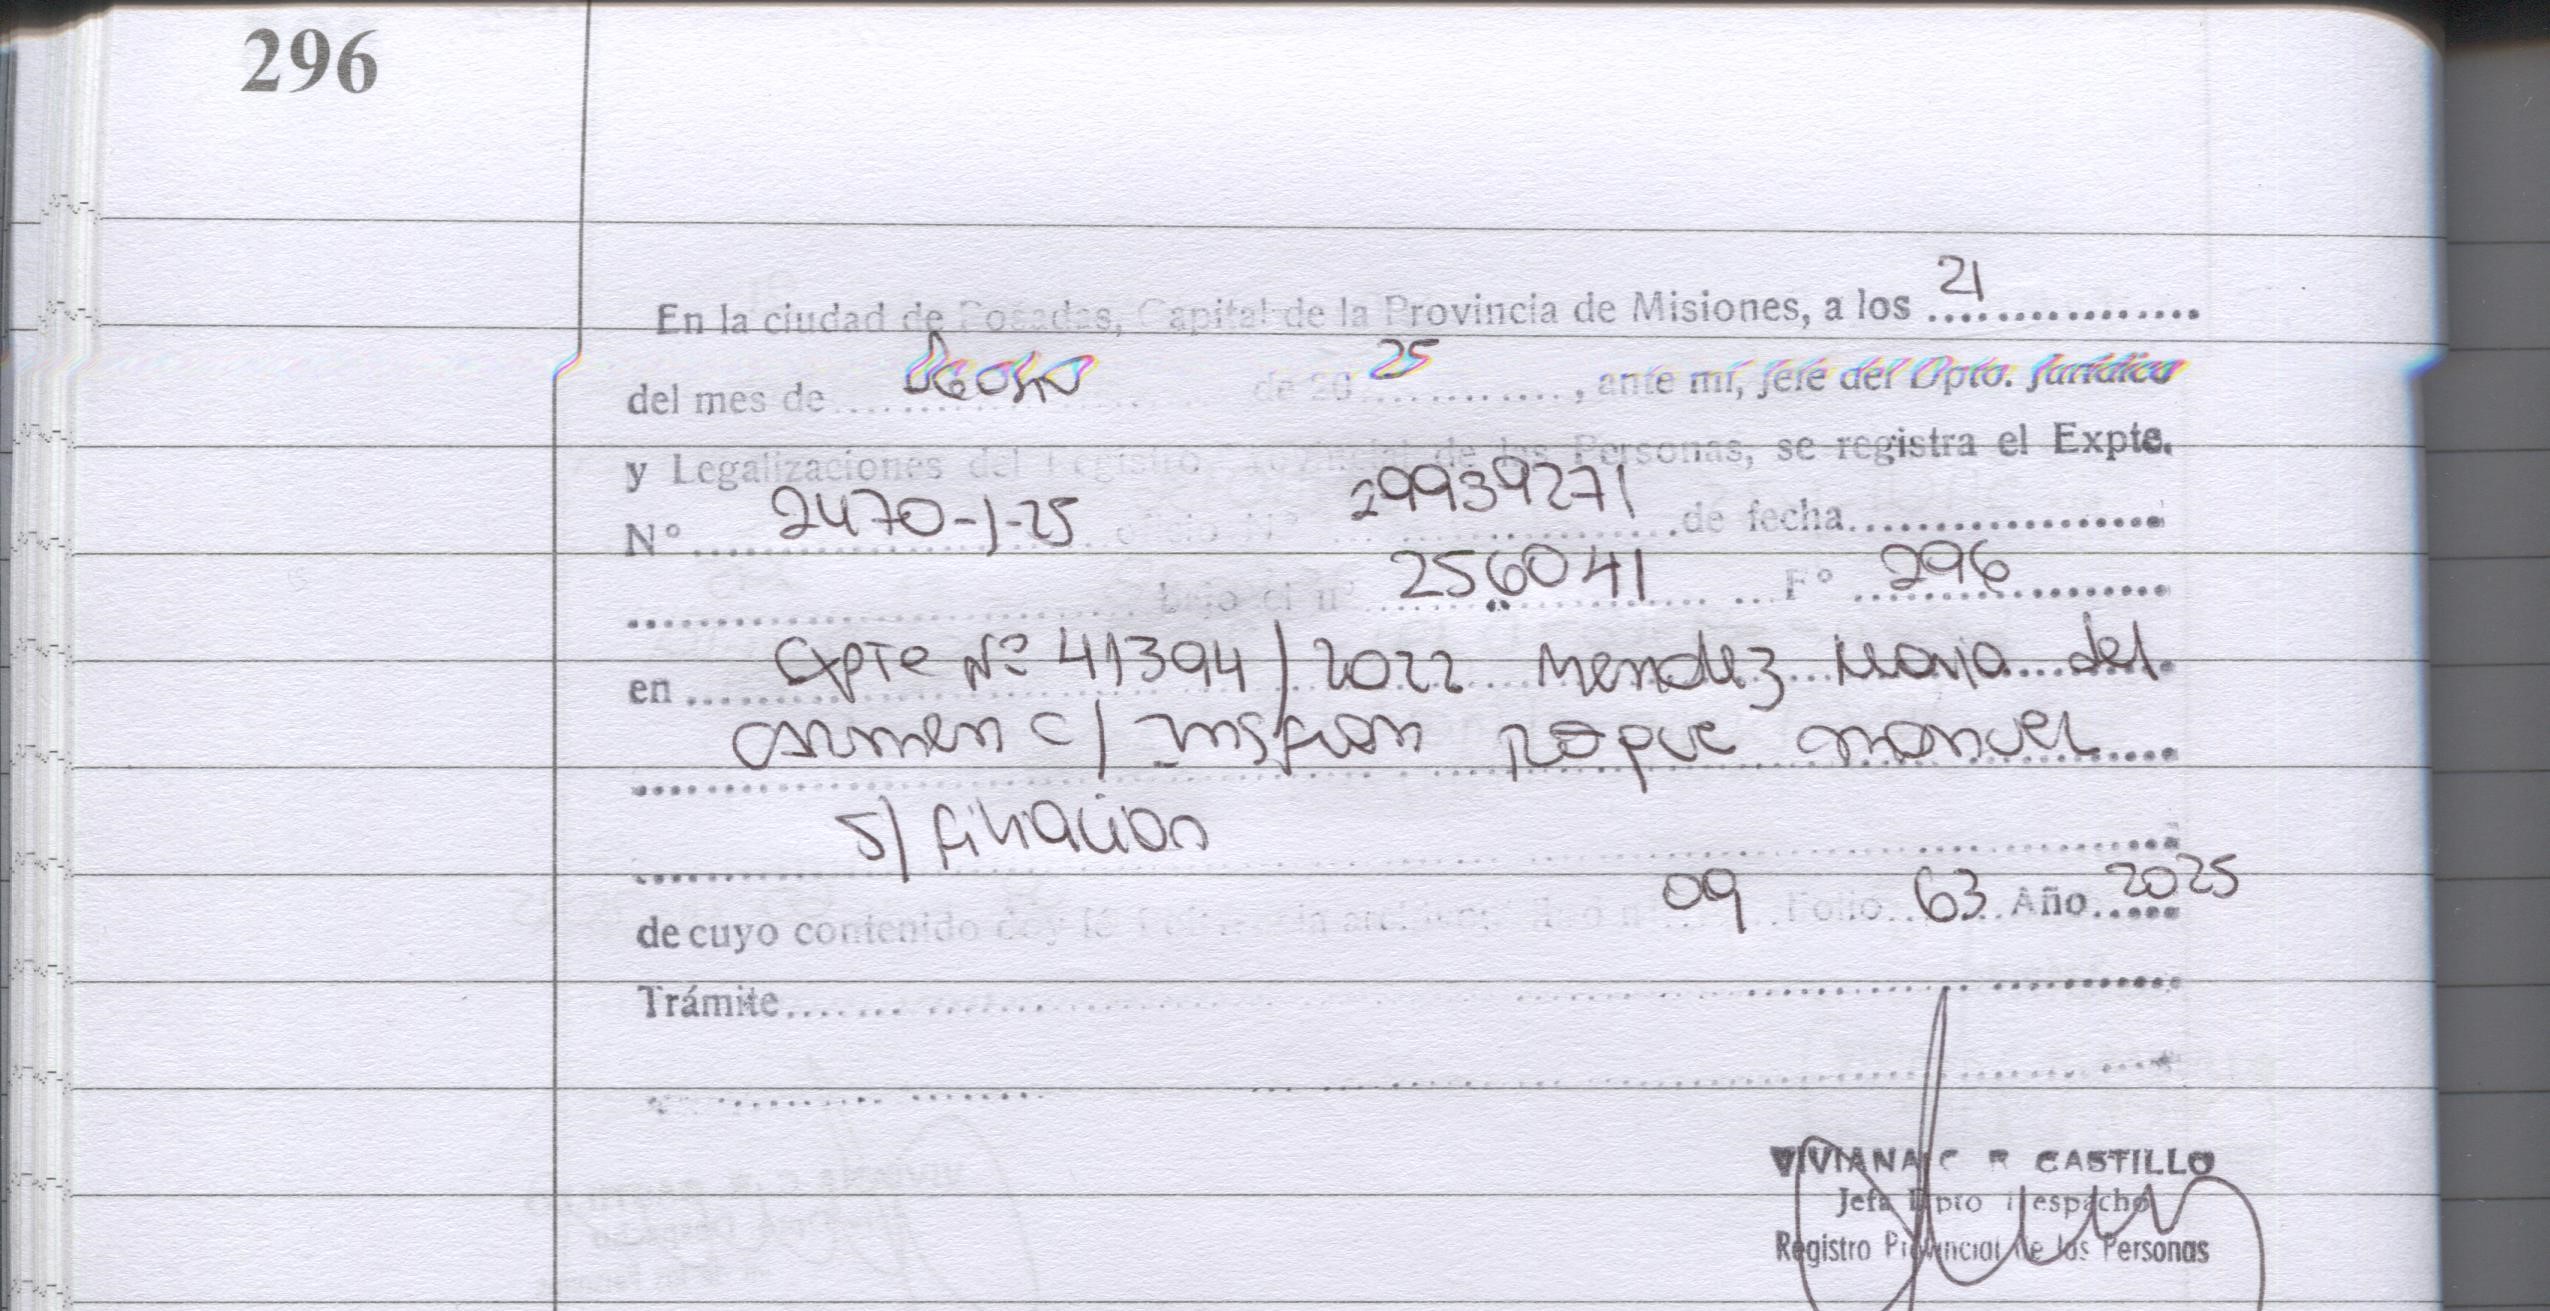 296
En la ciudad de Posadas, Capital de la Provincia de Misiones, a los 21
del mes de Agosto de 20 25, ante mí, Jefe del Dpto. Jurídico
y Legalizaciones del Registro Provincial de las Personas, se registra el Expte.
N° 2470-J-25 oficio N° 29939271 de fecha
bajo el n° 256041 F° 296
en Expte Nº 41394/2022 Mendez Maria del
Carmen c/ Roque Manuel
s/ filiacion
de cuyo contenido doy fé 09 Folio 63 Año 2025
Trámite
VIVIANA C R CASTILLO
Jefa Dpto Despacho
Registro Provincial de las Personas